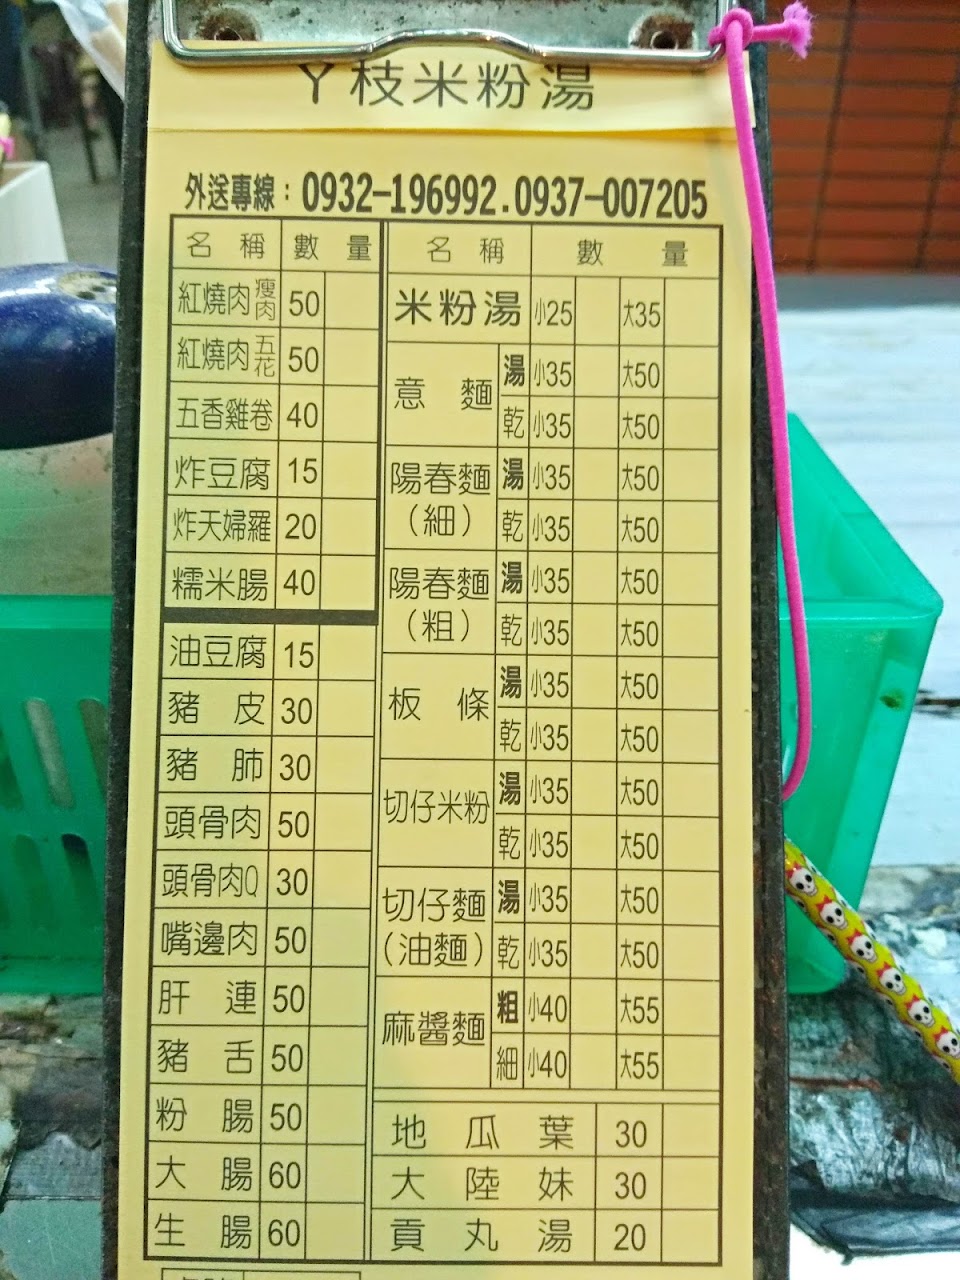 ㄚ枝米粉湯
外送專線：0932-196992.0937-007205
名稱 數量
紅燒肉瘦肉 50
紅燒肉五花 50
五香雞卷 40
炸豆腐 15
炸天婦羅 20
糯米腸 40
油豆腐 15
豬皮 30
豬肺 30
頭骨肉 50
頭骨肉Q 30
嘴邊肉 50
肝連 50
豬舌 50
粉腸 50
大腸 60
生腸 60
名稱 數量
米粉湯 小25 大35
意麵 湯 小35 大50
乾 小35 大50
陽春麵（細） 湯 小35 大50
乾 小35 大50
陽春麵（粗） 湯 小35 大50
乾 小35 大50
板條 湯 小35 大50
乾 小35 大50
切仔米粉 湯 小35 大50
乾 小35 大50
切仔麵（油麵） 湯 小35 大50
乾 小35 大50
麻醬麵 粗 小40 大55
細 小40 大55
地瓜葉 30
大陸妹 30
貢丸湯 20